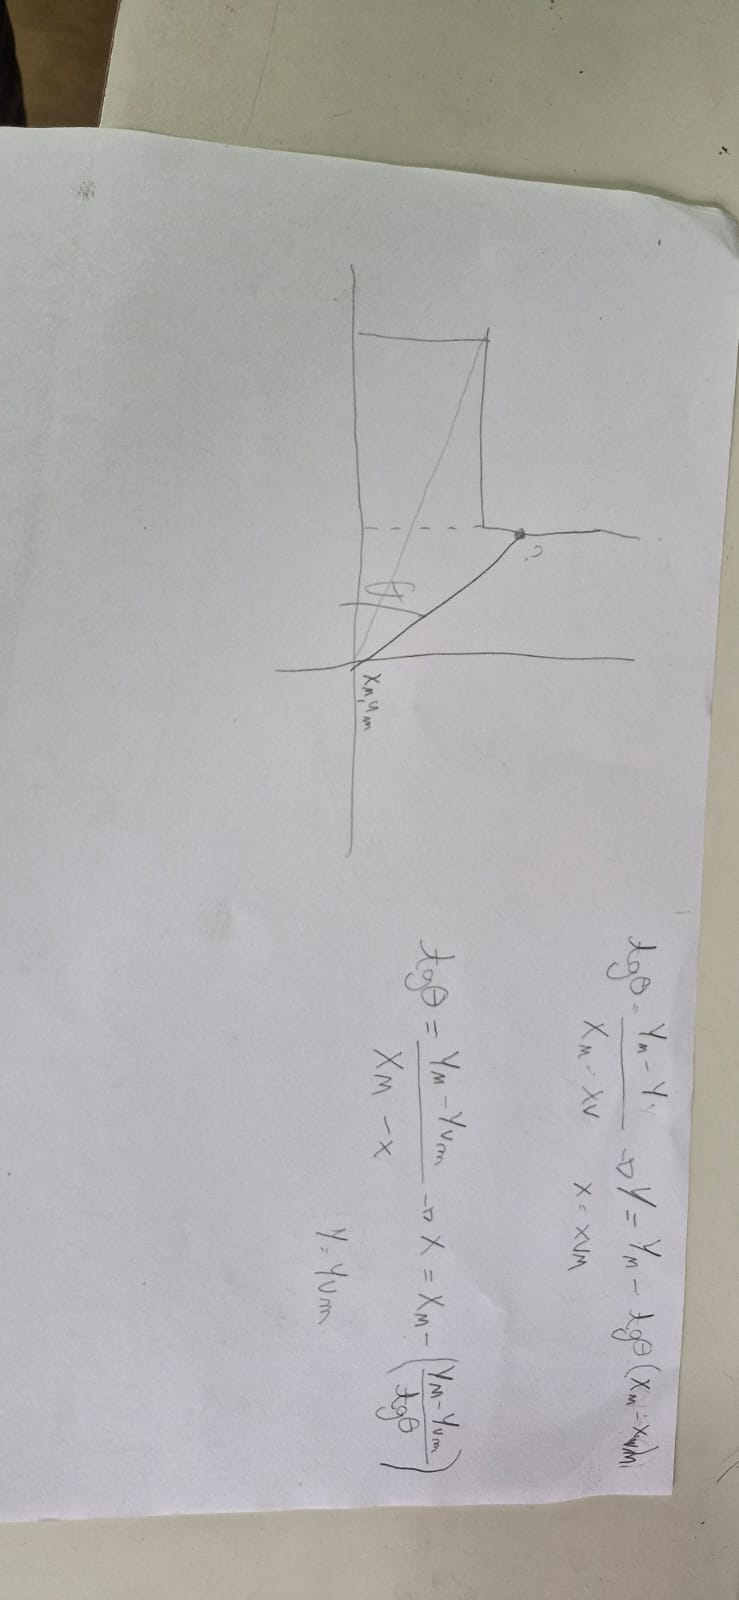 ?
θ
XM,YM
tgθ = YM - Y / XM - XV → Y = YM - tgθ (XM - XVM)
X = XVM
tgθ = YM - YVM / XM - X → X = XM - (YM - YVM / tgθ)
Y = YVM